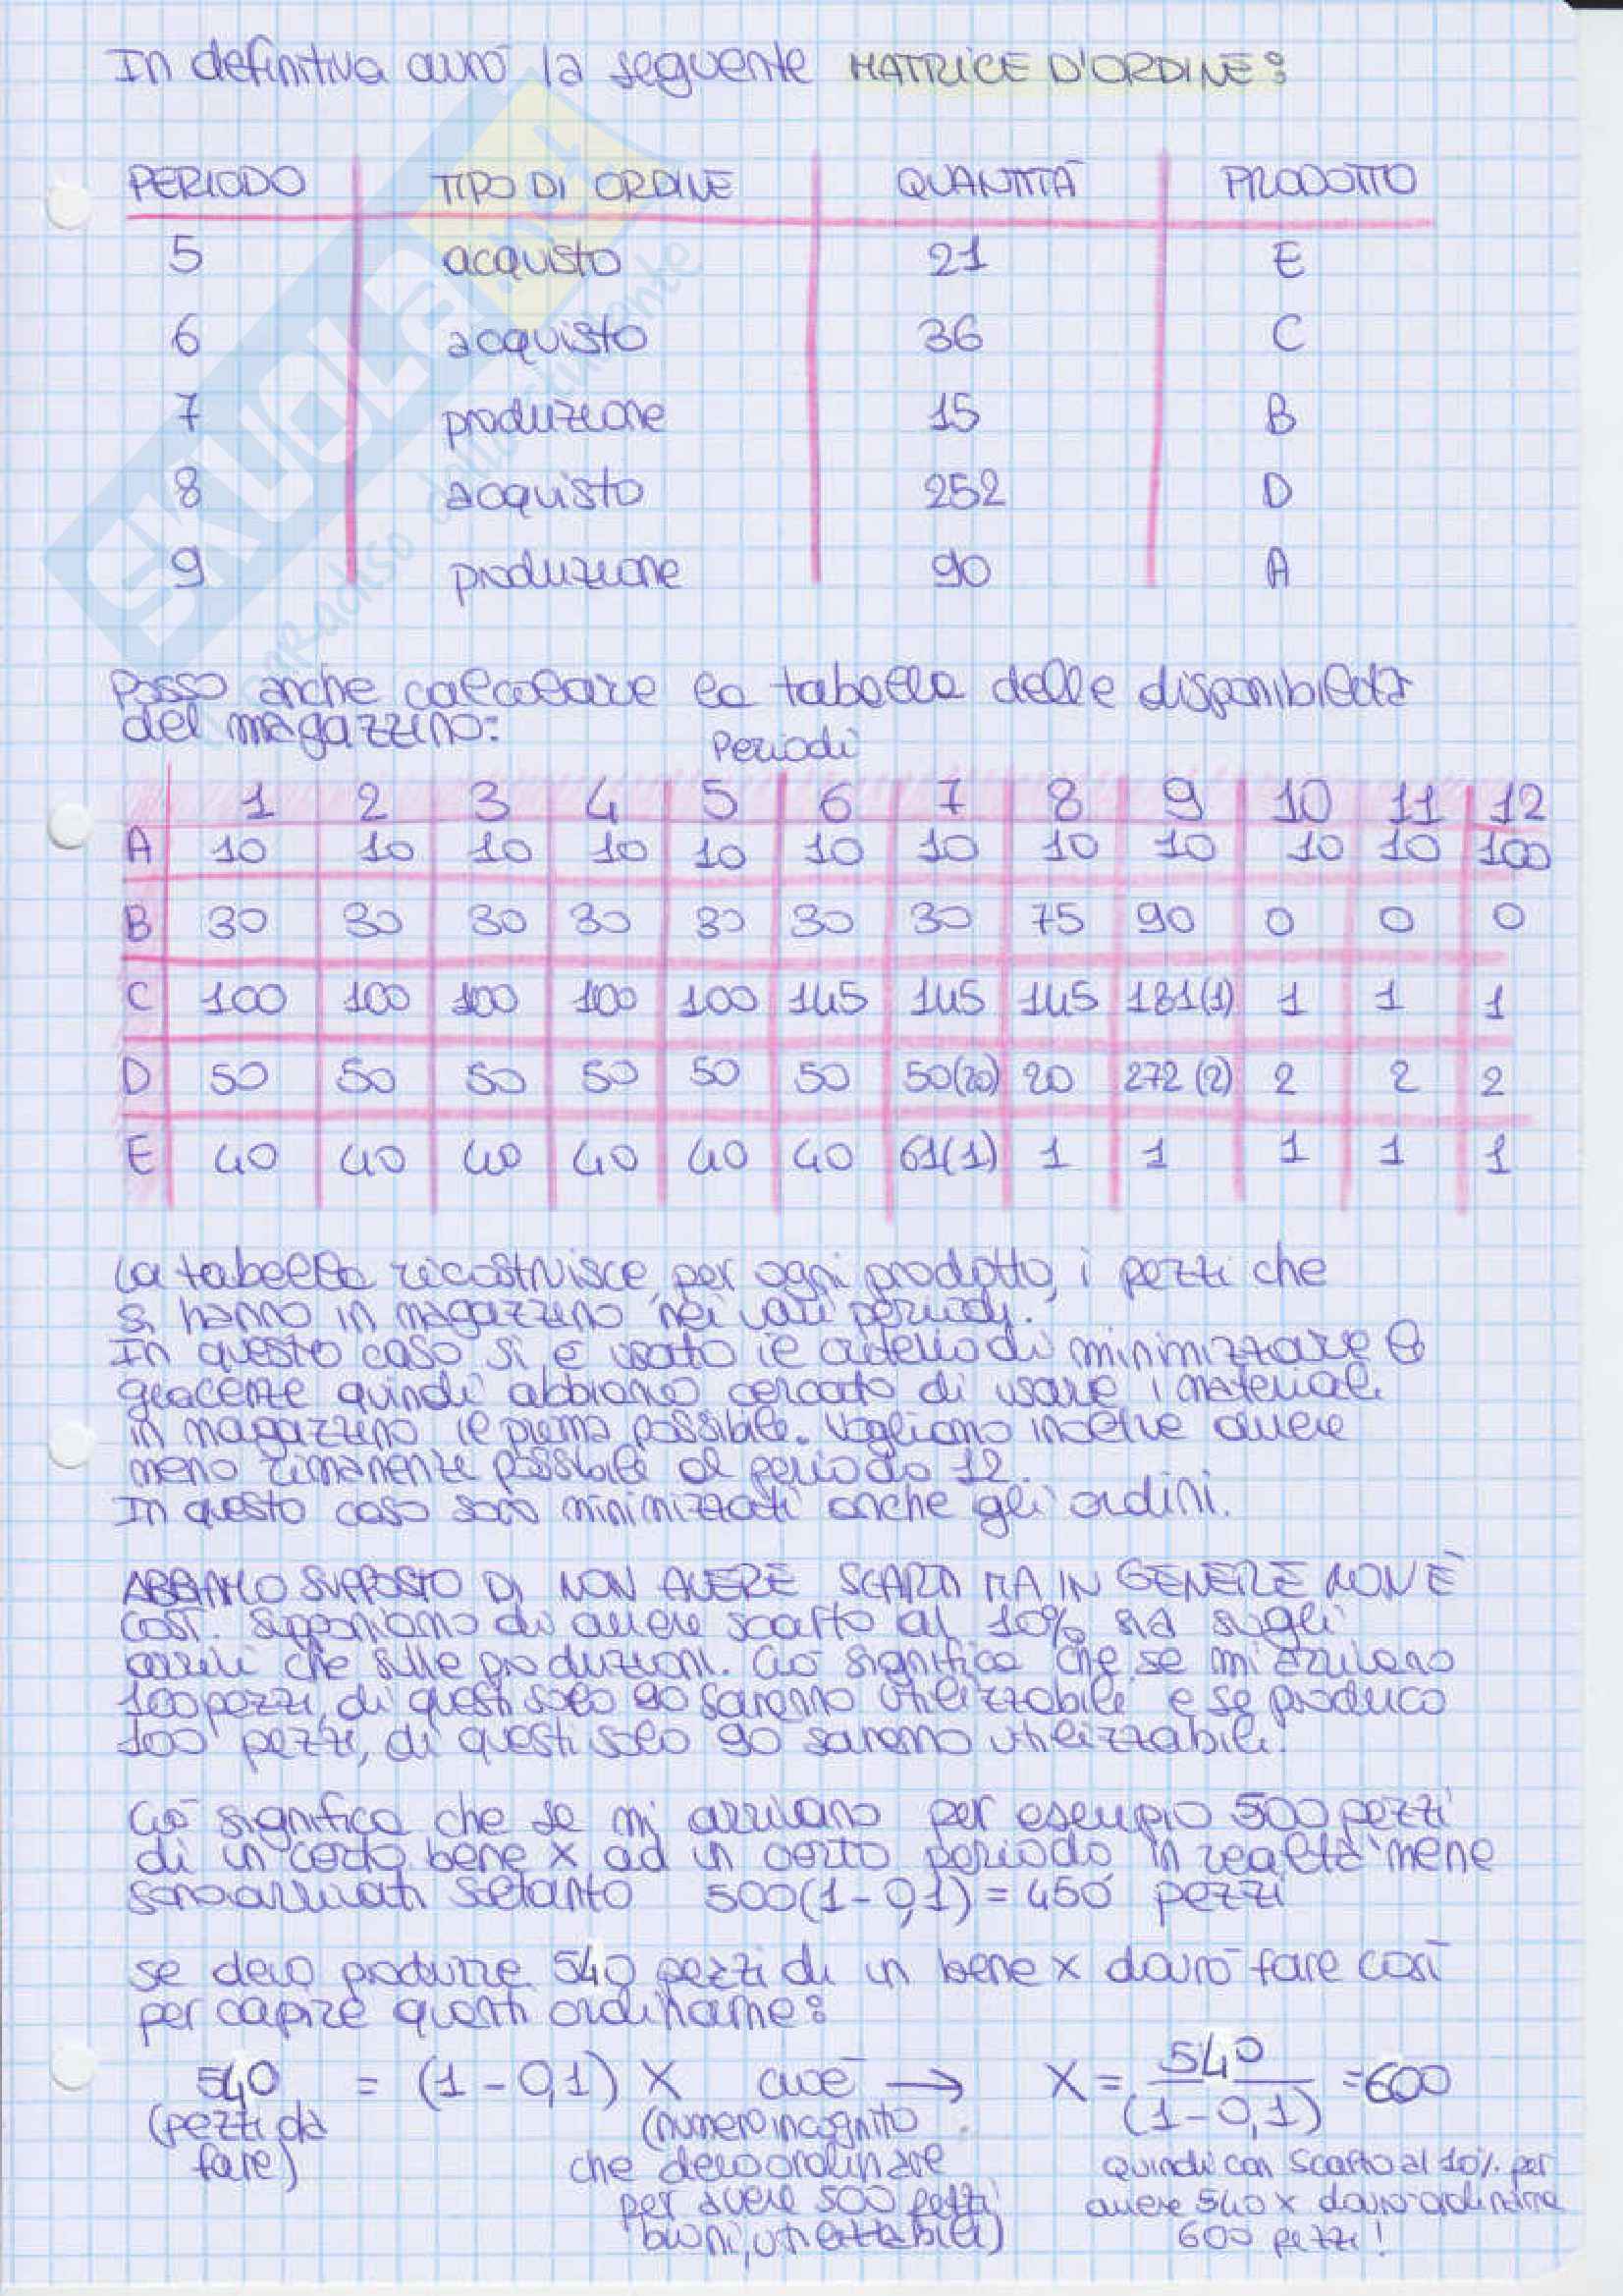 In definitiva avrò la seguente MATRICE D'ORDINE:
PERIODO TIPO DI ORDINE QUANTITÀ PRODOTTO
5 acquisto 21 E
6 acquisto 36 C
7 produzione 15 B
8 acquisto 252 D
9 produzione 90 A
Posso anche calcolare la tabella delle disponibilità
del magazzino:
Periodi
1 2 3 4 5 6 7 8 9 10 11 12
A 10 10 10 10 10 10 10 10 10 10 10 100
B 30 30 30 30 30 30 30 75 90 0 0 0
C 100 100 100 100 100 145 145 145 181(1) 1 1 1
D 50 50 50 50 50 50 50(20) 20 272(2) 2 2 2
E 40 40 40 40 40 40 61(1) 1 1 1 1 1
La tabella ricostruisce, per ogni prodotto, i pezzi che
si hanno in magazzino nei vari periodi.
In questo caso si è usato il criterio di minimizzare le
giacenze quindi abbiamo cercato di usare i materiali
in magazzino il prima possibile. Vogliamo inoltre avere
meno rimanenze possibili al periodo 12.
In questo caso sono minimizzati anche gli ordini.
ABBIAMO SUPPOSTO DI NON AVERE SCARTI MA IN GENERE NON È
COSÌ. Supponiamo di avere scarto al 10% sia sugli
arrivi che sulle produzioni. Ciò significa che se mi arrivano
100 pezzi, di questi solo 90 saranno utilizzabili e se produco
100 pezzi, di questi solo 90 saranno utilizzabili.
Ciò significa che se mi arrivano per esempio 500 pezzi
di un certo bene x ad un certo periodo in realtà me ne
sono arrivati soltanto 500(1-0,1)=450 pezzi
se devo produrre 540 pezzi di un bene x dovrò fare così
per capire quanti ordinarne:
540 = (1-0,1) X cioè → X = 540/(1-0,1) = 600
(pezzi da (numero incognito
fare) che devo ordinare quindi con scarto al 10% per
per avere 500 pezzi avere 540 x dovrò ordinarne
buoni, utilizzabili) 600 pezzi!
SKUOLA.net
paradiso dello studente